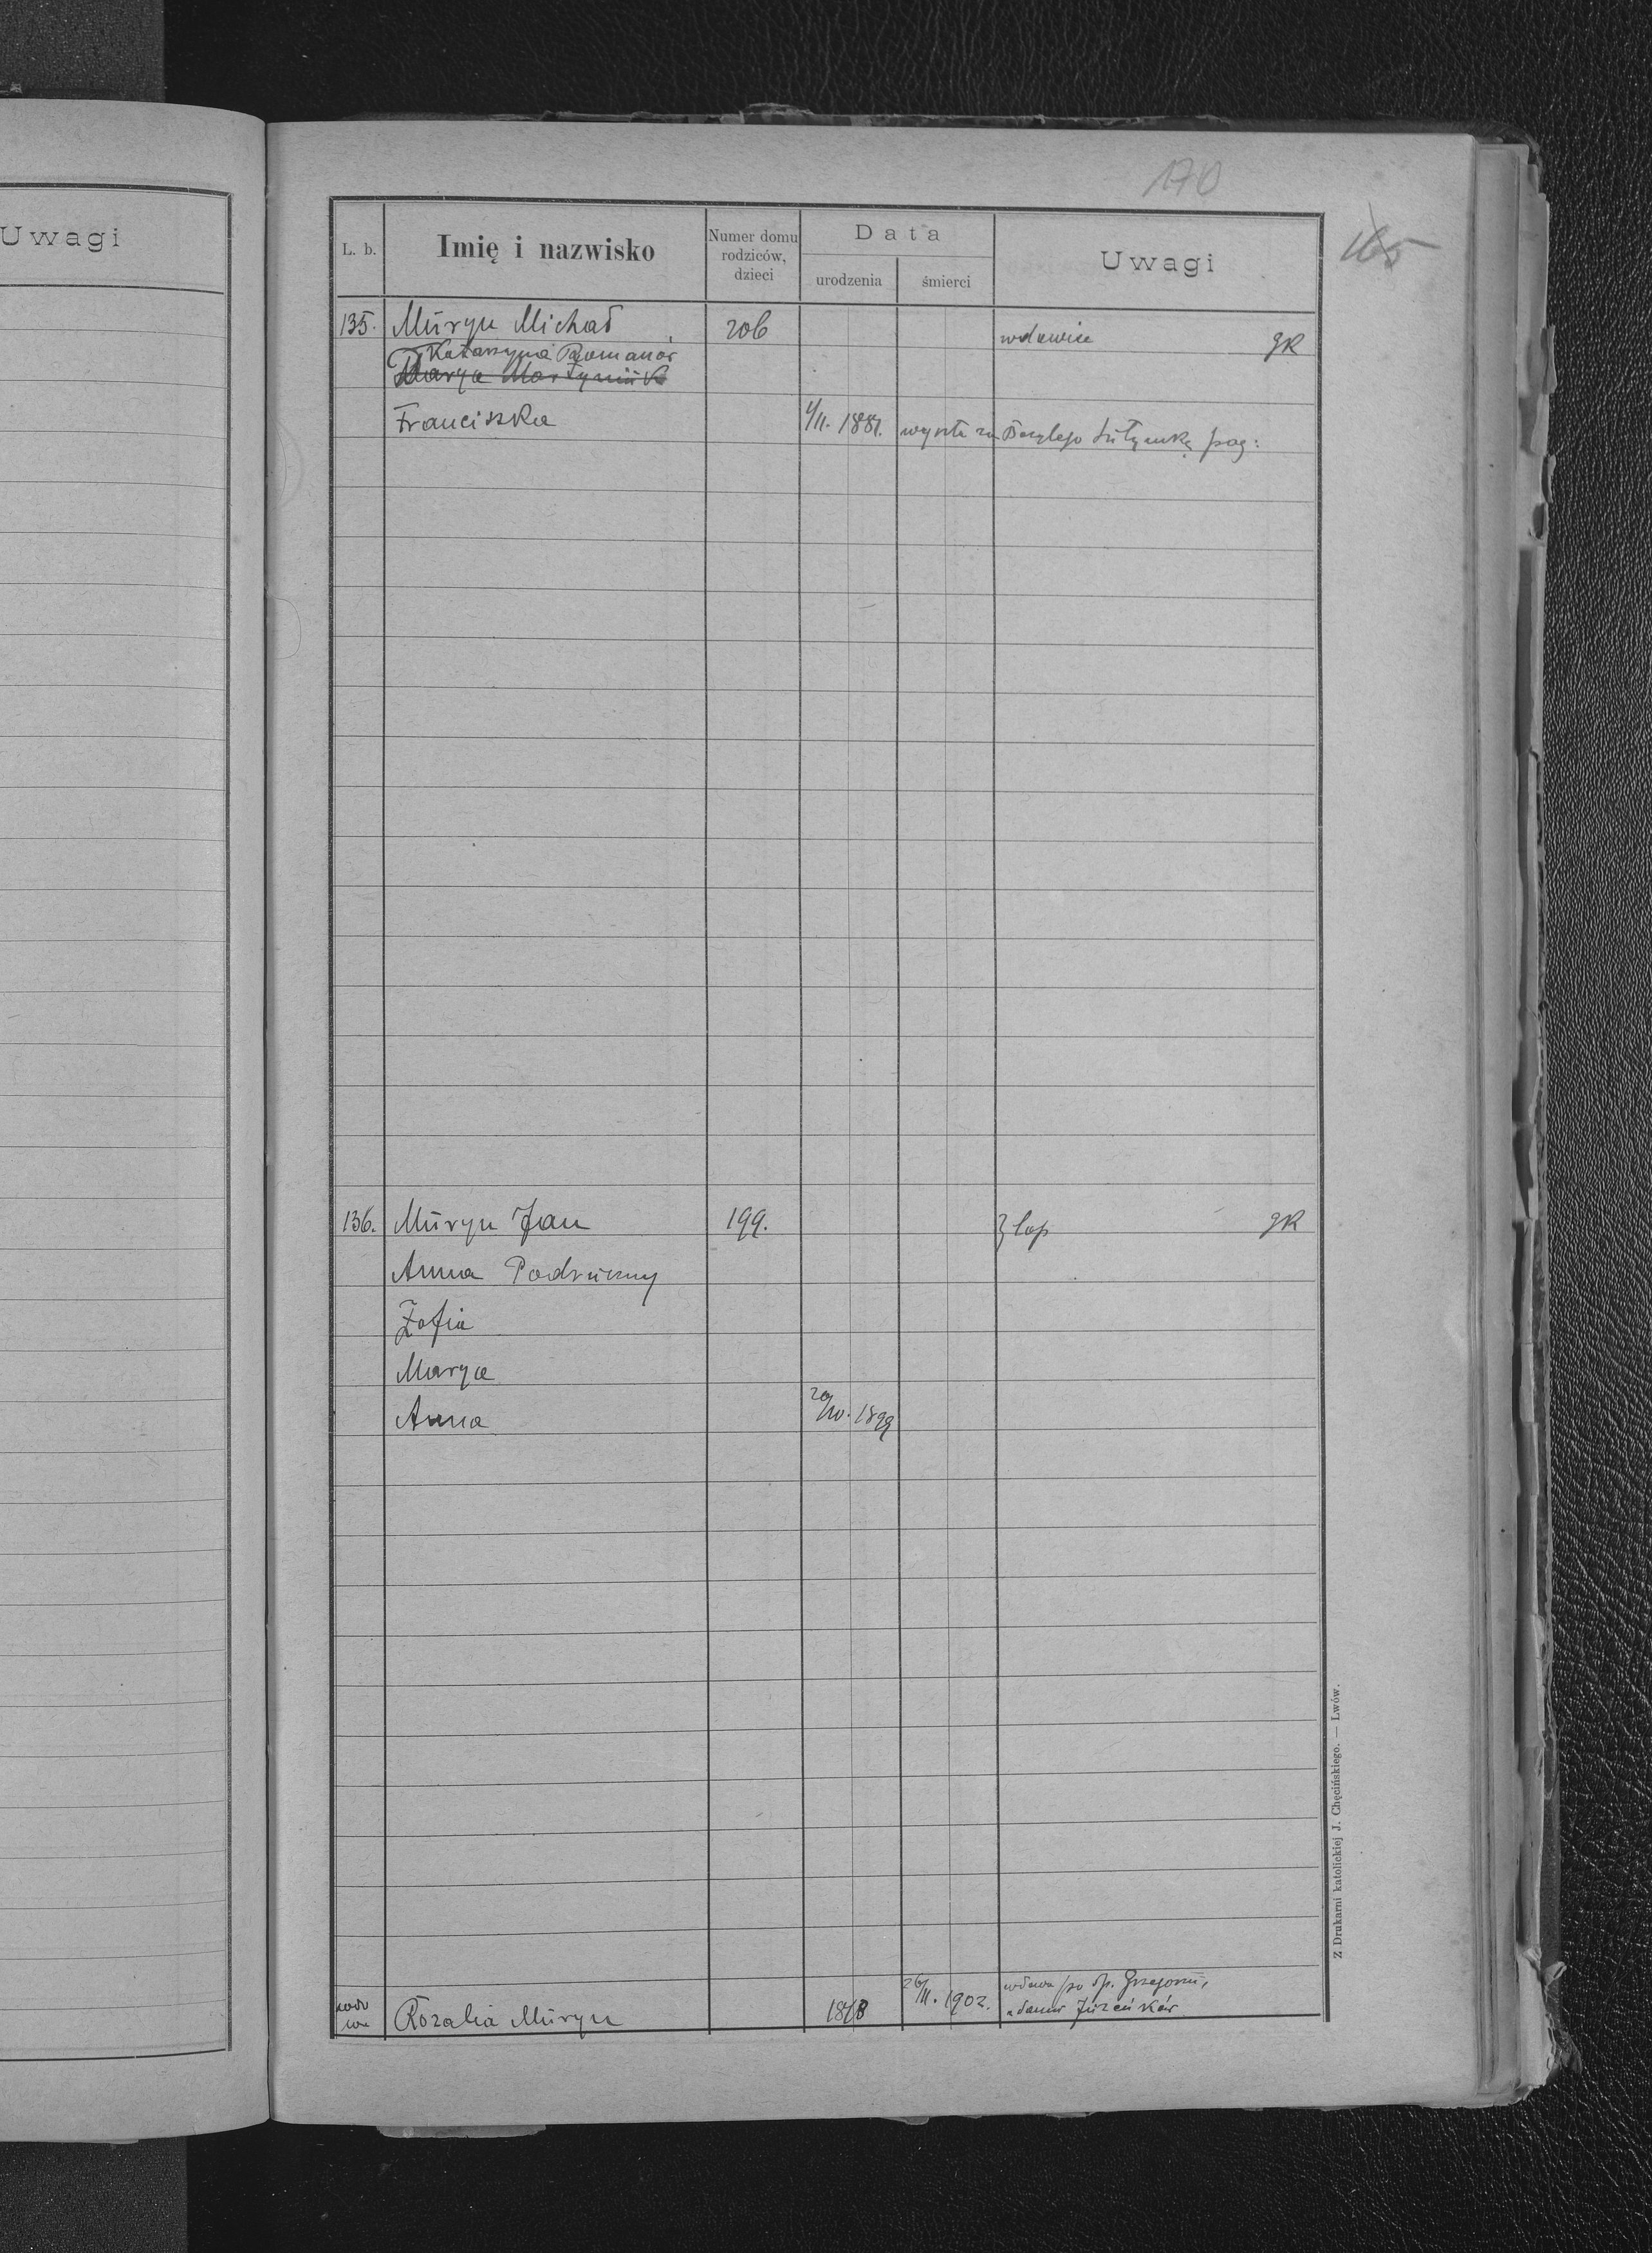 170
165
Uwagi
L. b. Imię i nazwisko Numer domu rodziców, dzieci Data urodzenia śmierci Uwagi
135. Muryn Michał 206 wdowiec gR
Katarzyna Romanów
Marya Martyniuk
Franciszka 1/II. 1881. wyszła za Bazylego
136. Muryn Jan 199. gR
Anna Podruczny
Zofia
Marya
Anna 20/IV. 1899
wdowa Rozalia Muryn 1878 26/II. 1902. wdowa po śp. Grzegorzu,
z domu
Z Drukarni katolickiej J. Chęcińskiego. — Lwów.